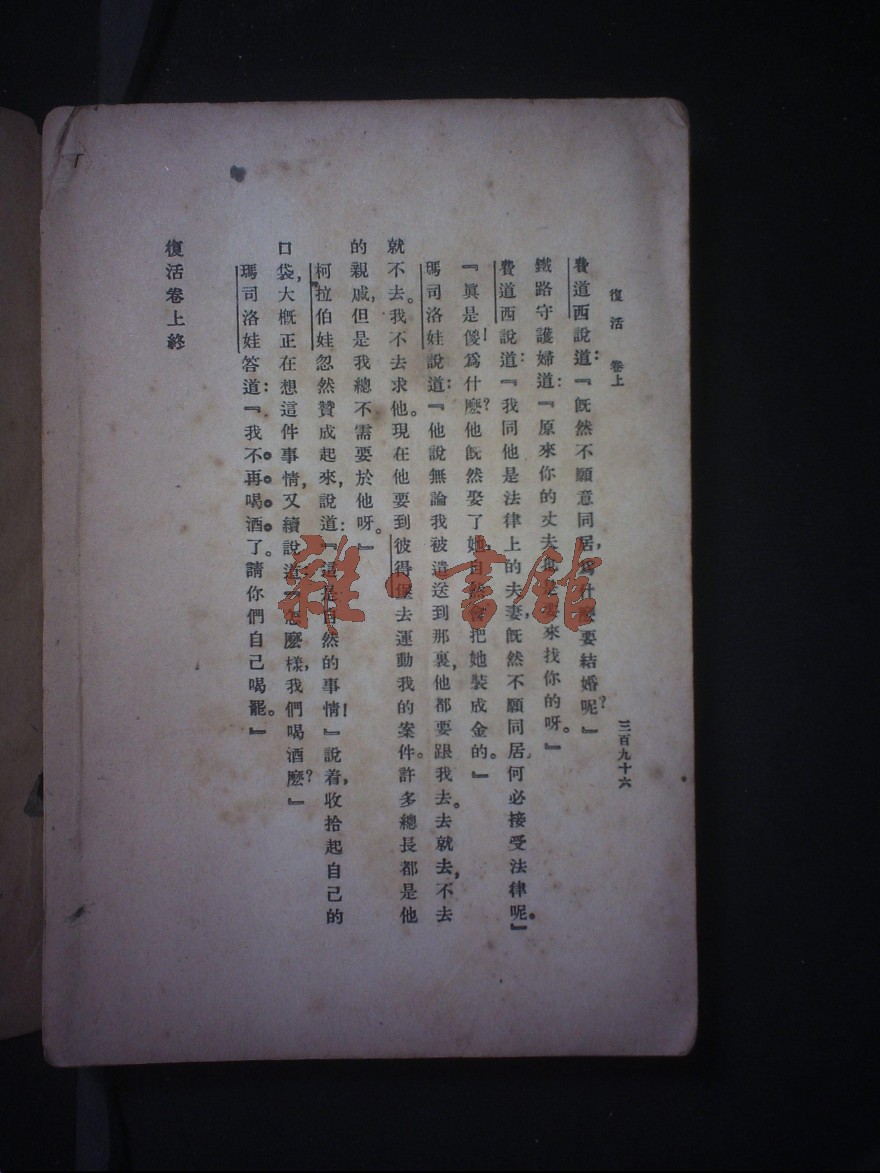 復活 卷上 三百九十六
費道西說道：『旣然不願意同居，爲什麼要結婚呢？』
鐵路守護婦道：『原來你的丈夫來找你的呀。』
費道西說道：『我同他是法律上的夫妻，旣然不願同居，何必接受法律呢。』
『眞是傻！爲什麼？他旣然娶了她，自然會把她裝成金的。』
瑪司洛娃說道：『他說無論我被遣送到那裏，他都要跟我去。去就去，不去
就不去。我不去求他。現在他要到彼得堡去運動我的案件。許多總長都是他
的親戚，但是我總不需要於他呀。』
柯拉伯娃忽然贊成起來，說道：『這是自然的事情！』說着，收拾起自己的
口袋，大槪正在想這件事情，又續說道：『怎麼樣，我們喝酒麼？』
瑪司洛娃答道：『我不再喝酒了。請你們自己喝罷。』
復活卷上終
雜·書館